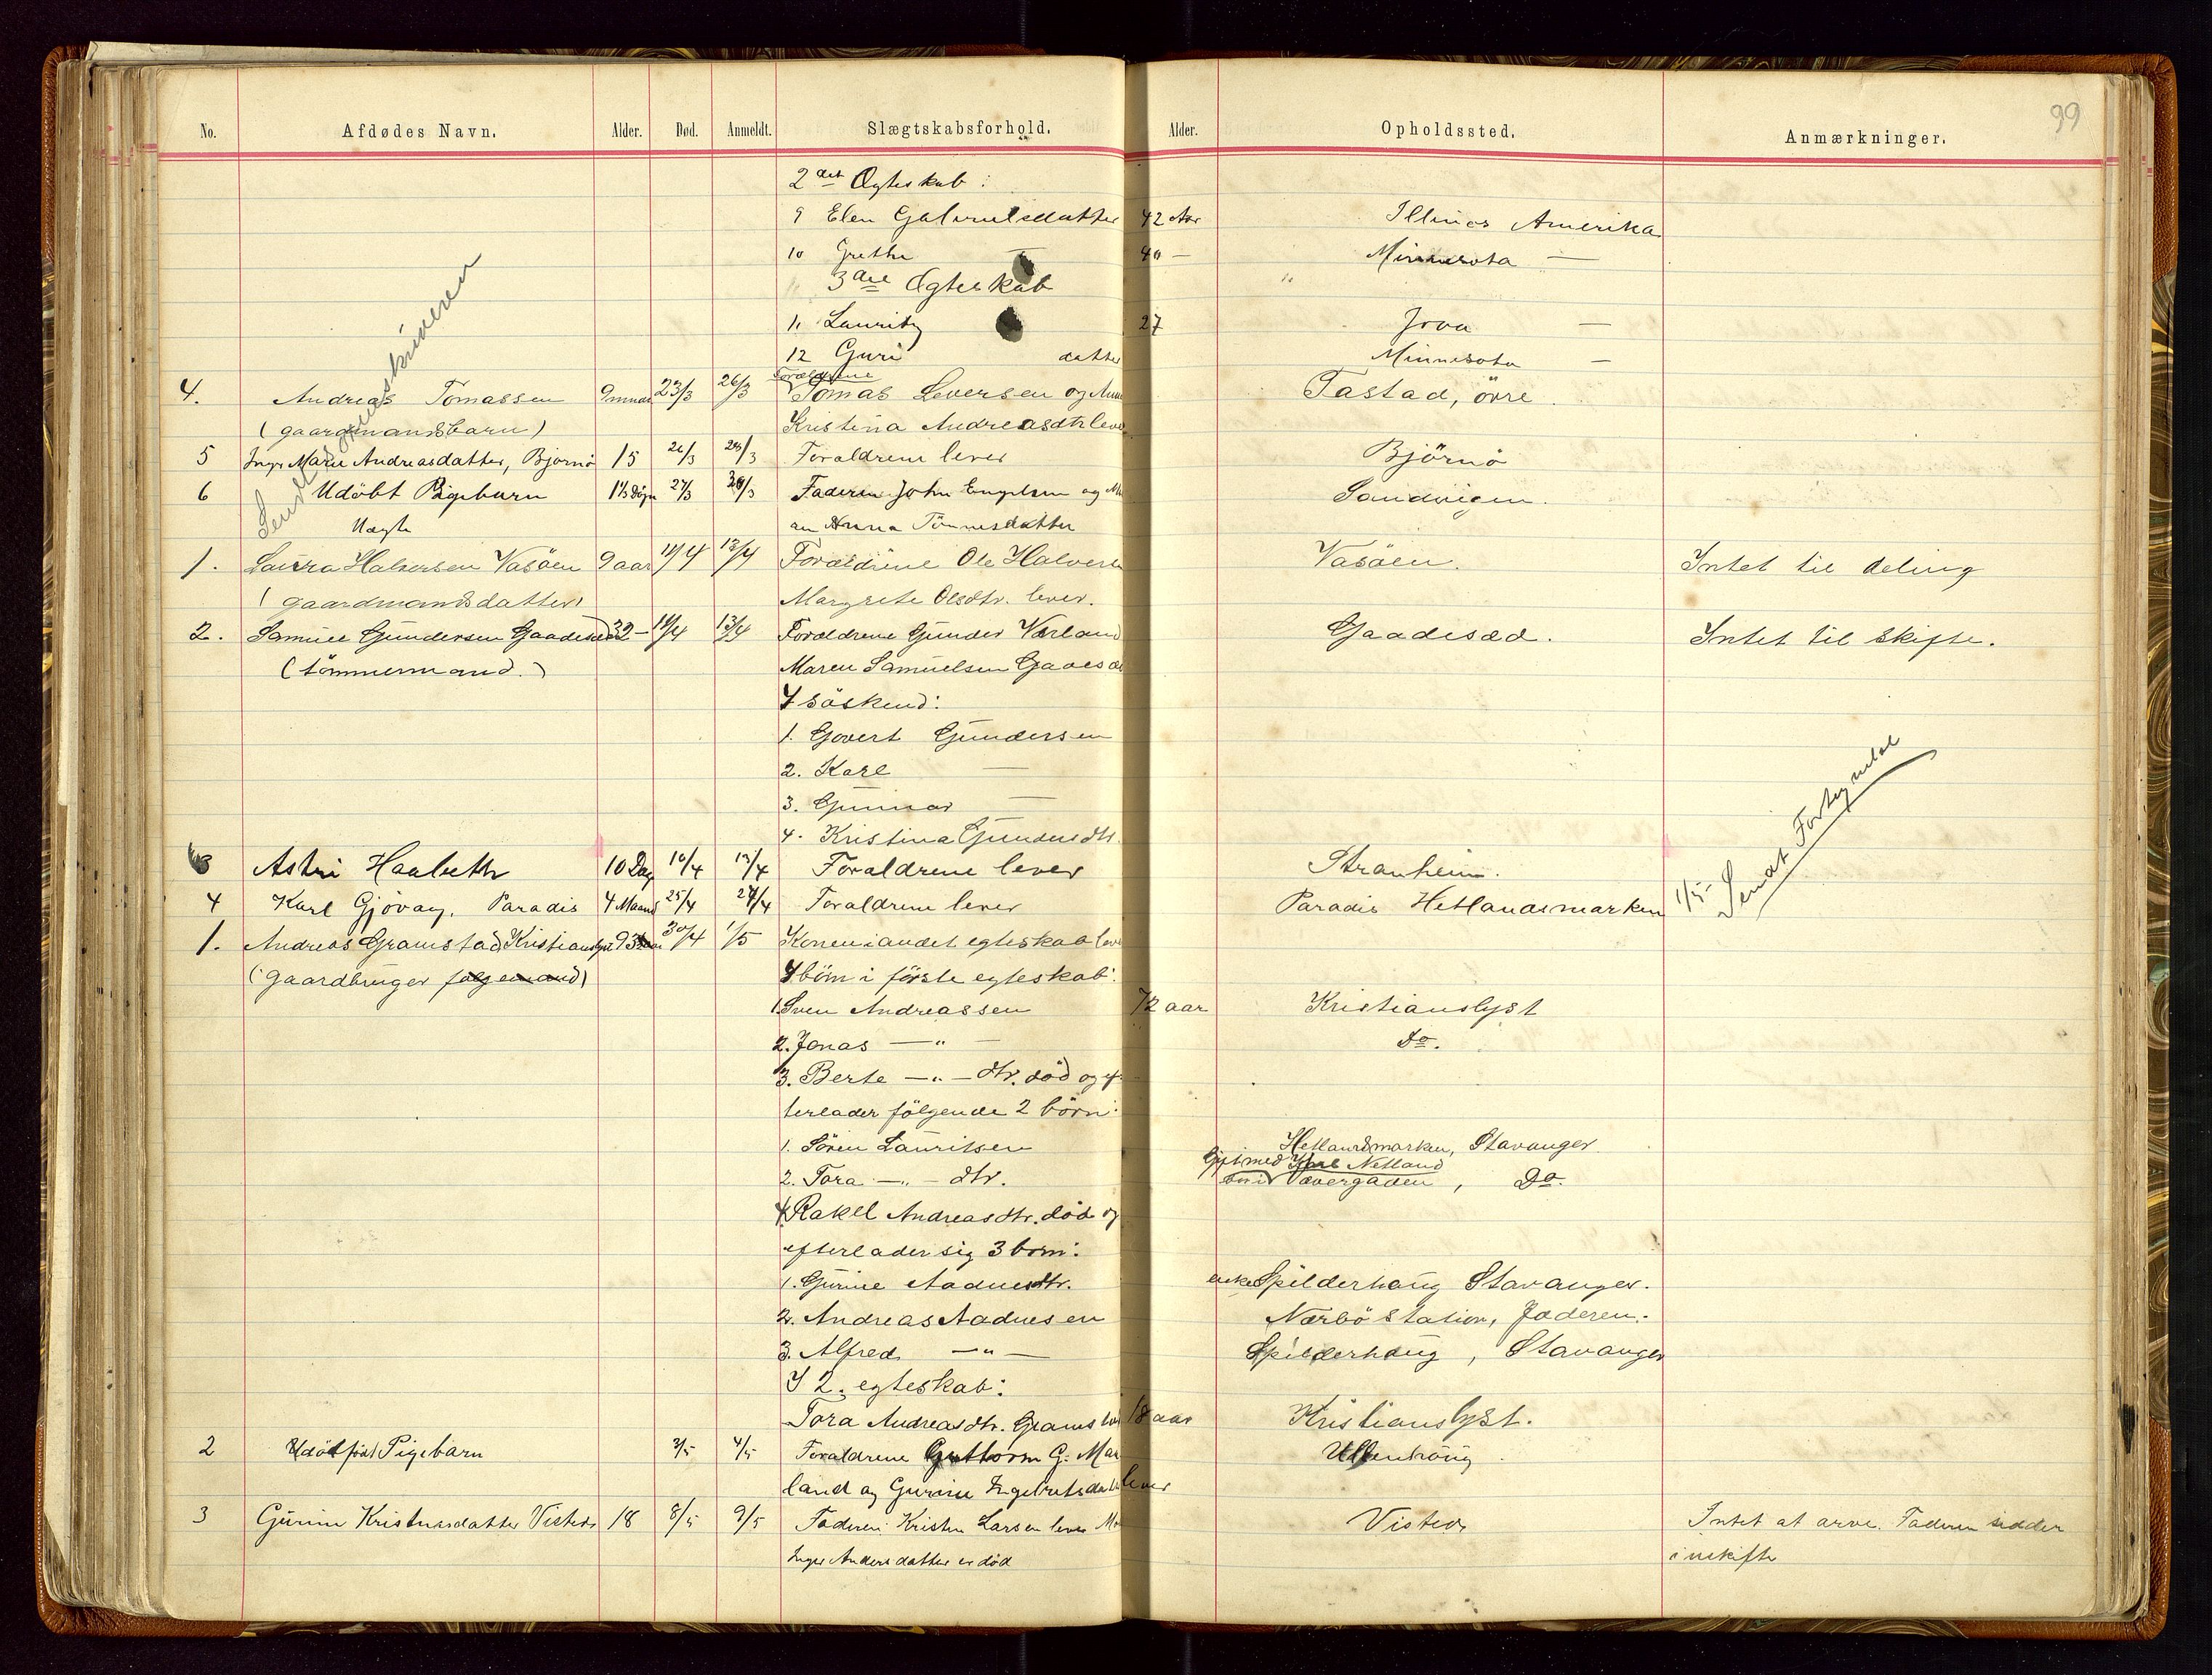 99
No. Afdødes Navn. Alder. Død. Anmeldt. Slægtskabsforhold. Alder. Opholdssted. Anmærkninger.
2det Ægteskab:
9 Elen Gabrielsdatter 42 Aar Illinos Amerika
10 Grethe — 40 — Minnesota —
3die Ægteskab
11 Lauritz 27 Iova —
12 Guri datter Minnesota —
Forældrene
4. Andreas Tomassen 9 mnd 23/3 26/3 Tomas Leversen og Anna Tastad, övre.
(gaardmandsbarn) Kristina Andreasdtr lever
5 Inger Marie Andreasdatter, Bjørnø 15 26/3 28/3 Forældrene lever Björnö
6 Udöbt Pigebarn 1½ Døgn 27/3 30/3 Faderen John Engelsen og Sandvigen.
Uægte Anna Tönnesdatter
Sendt skriveren
1. Laura Halvorsen Vasöen 9 aar 11/4 13/4 Forældrene Ole Halvorsen Vasöen. Intet til deling
(gaardmandsdatter) Margrete Olsdtr. lever.
2. Samuel Gundersen Gaadesæd 32 — 11/4 13/4 Forældrene Gunder Værland Gaadesæd. Intet til skifte.
(tömmermand.) Maren Samuelsen
4 söskend:
1. Govert Gundersen
2. Karl —
3. Gunnar —
4. Kristina Gundersdtr.
3 Astri Haabeth 10 Dag 10/4 12/4 Forældrene lever Stranheim.
4 Karl Gjövaag, Paradis 4 Maand 25/4 27/4 Forældrene lever Paradis Hetlandsmarken 1/5 Sendt Fortegnelse
1. Andreas Gramstad Kristianslyst 93 aar 30/4 1/5 Konen i andet egteskab lever
(gaardbruger følgemand) 4 börn i förste egteskab:
1. Sven Andreassen 72 aar Kristianslyst
2. Jonas — " — do.
3. Berte — " — dtr. död og ef-
terlader fölgende 2 börn:
1. Sören Lauritsen Hetlandsmarken, Stavanger
Gift med Karl Netland
2. Tora — " — dtr. Vævergaden, Do.
4. Rakel Andreasdtr. död og
efterlader sig 3 börn:
1. Gurine Aadnesdtr. enke Spilderhaug Stavanger.
2. Andreas Aadnesen Nærbö station, Jæderen.
3. Alfred — " — Spilderhaug, Stavanger
I 2. egteskab:
Tora Andreasdtr. Gramstad 18 aar Kristianslyst.
2 Udöbt født Pigebarn 3/5 4/5 Forældrene Guttorm G. Mar- Ullenhaug.
land og Gurine Ingebretsdatter lever
3 Gurine Kristensdatter Visted 18 8/5 9/5 Faderen Kristen Larsen lever Visted Intet at arve. Faderen sidder
Inger Andersdatter er död i uskifte